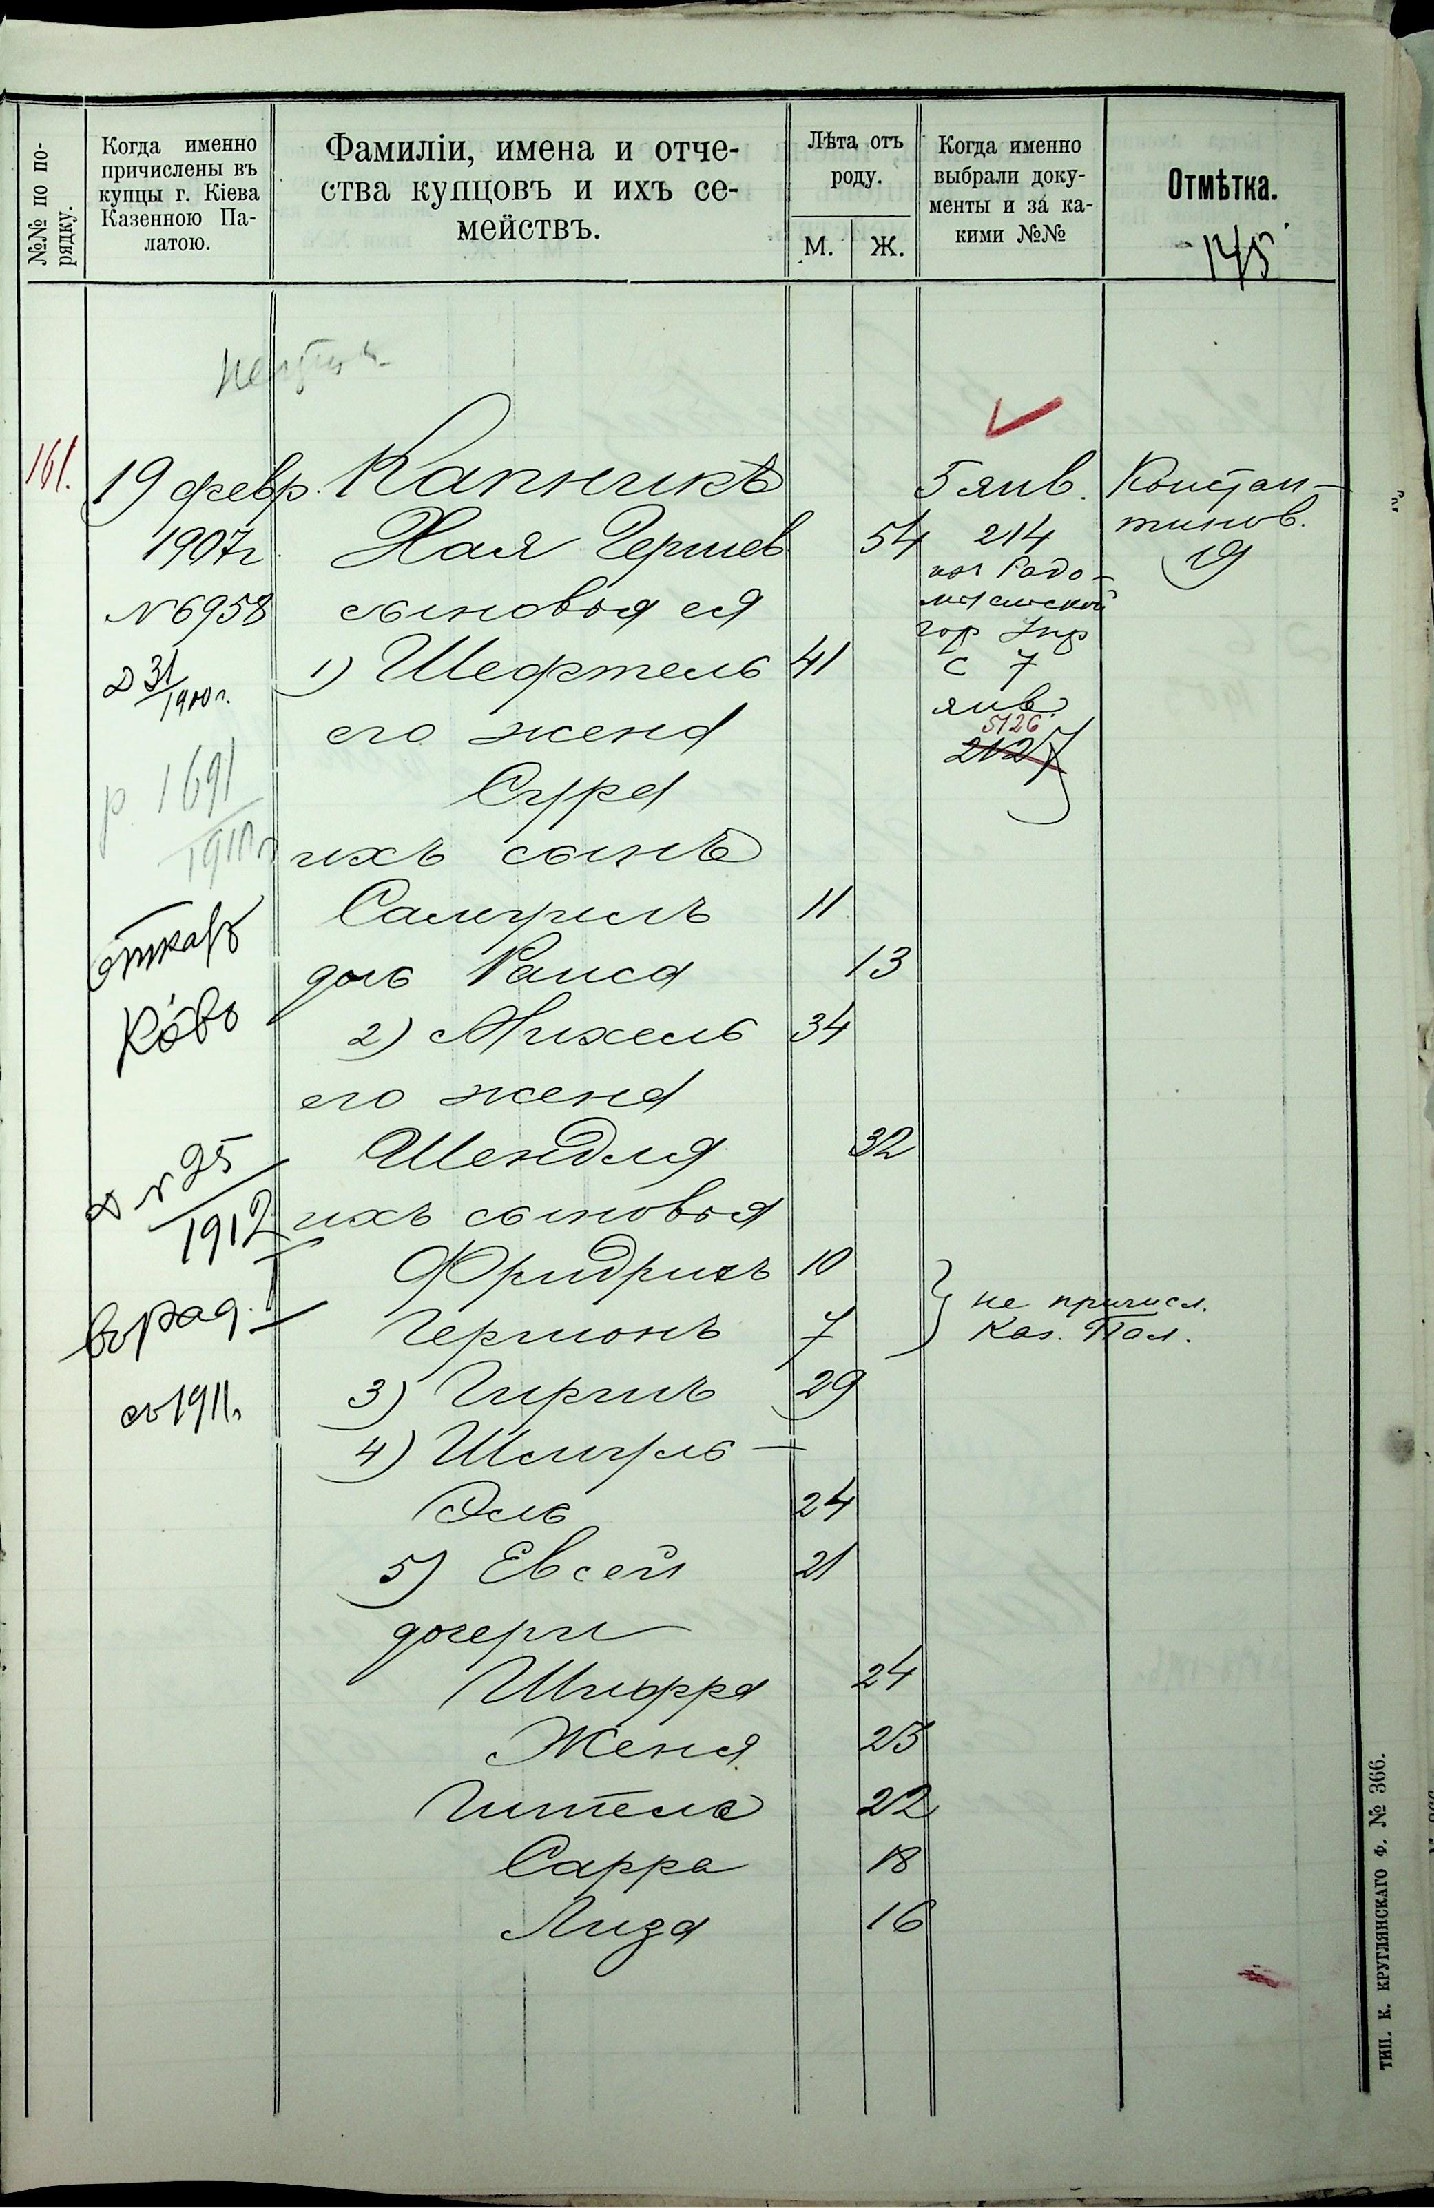 №№ по по-
рядку.
Когда именно
причислены въ
купцы г. Кіева
Казенною Па-
латою.
Фамиліи, имена и отче-
ства купцовъ и ихъ се-
мействъ.
Лѣта отъ
роду.
М.
Ж.
Когда именно
выбрали доку-
менты и за ка-
кими №№
Отмѣтка.
145
161.
19 февр.
1907 г
№ 6958
Д 31/1900 г.
р. 1691
1910 г
№ 25
1912
съ 1911 г.
Капникъ
Хая Гершев 54
сыновья ея
1) Шефтель 41
его жена
Сура
ихъ сынъ
Самуилъ 11
дочь Раиса 13
2) Михель 34
его жена
Шендля 32
ихъ сыновья
Фридрихъ 10
Гершонъ 7
3) Гиршъ 29
4) Шмуль-
Эль 24
5) Евсей 21
дочери
Шифра 24
Женя 23
Гитель 22
Сарра 18
Лиза 16
5 янв.
214
Радо-
мысльской
гор Упр
с 7
янв.
5126
2127
не причисл.
Каз. Пал.
Констан-
тинов.
19
ТИП. К. КРУГЛЯНСКАГО Ф. № 366.